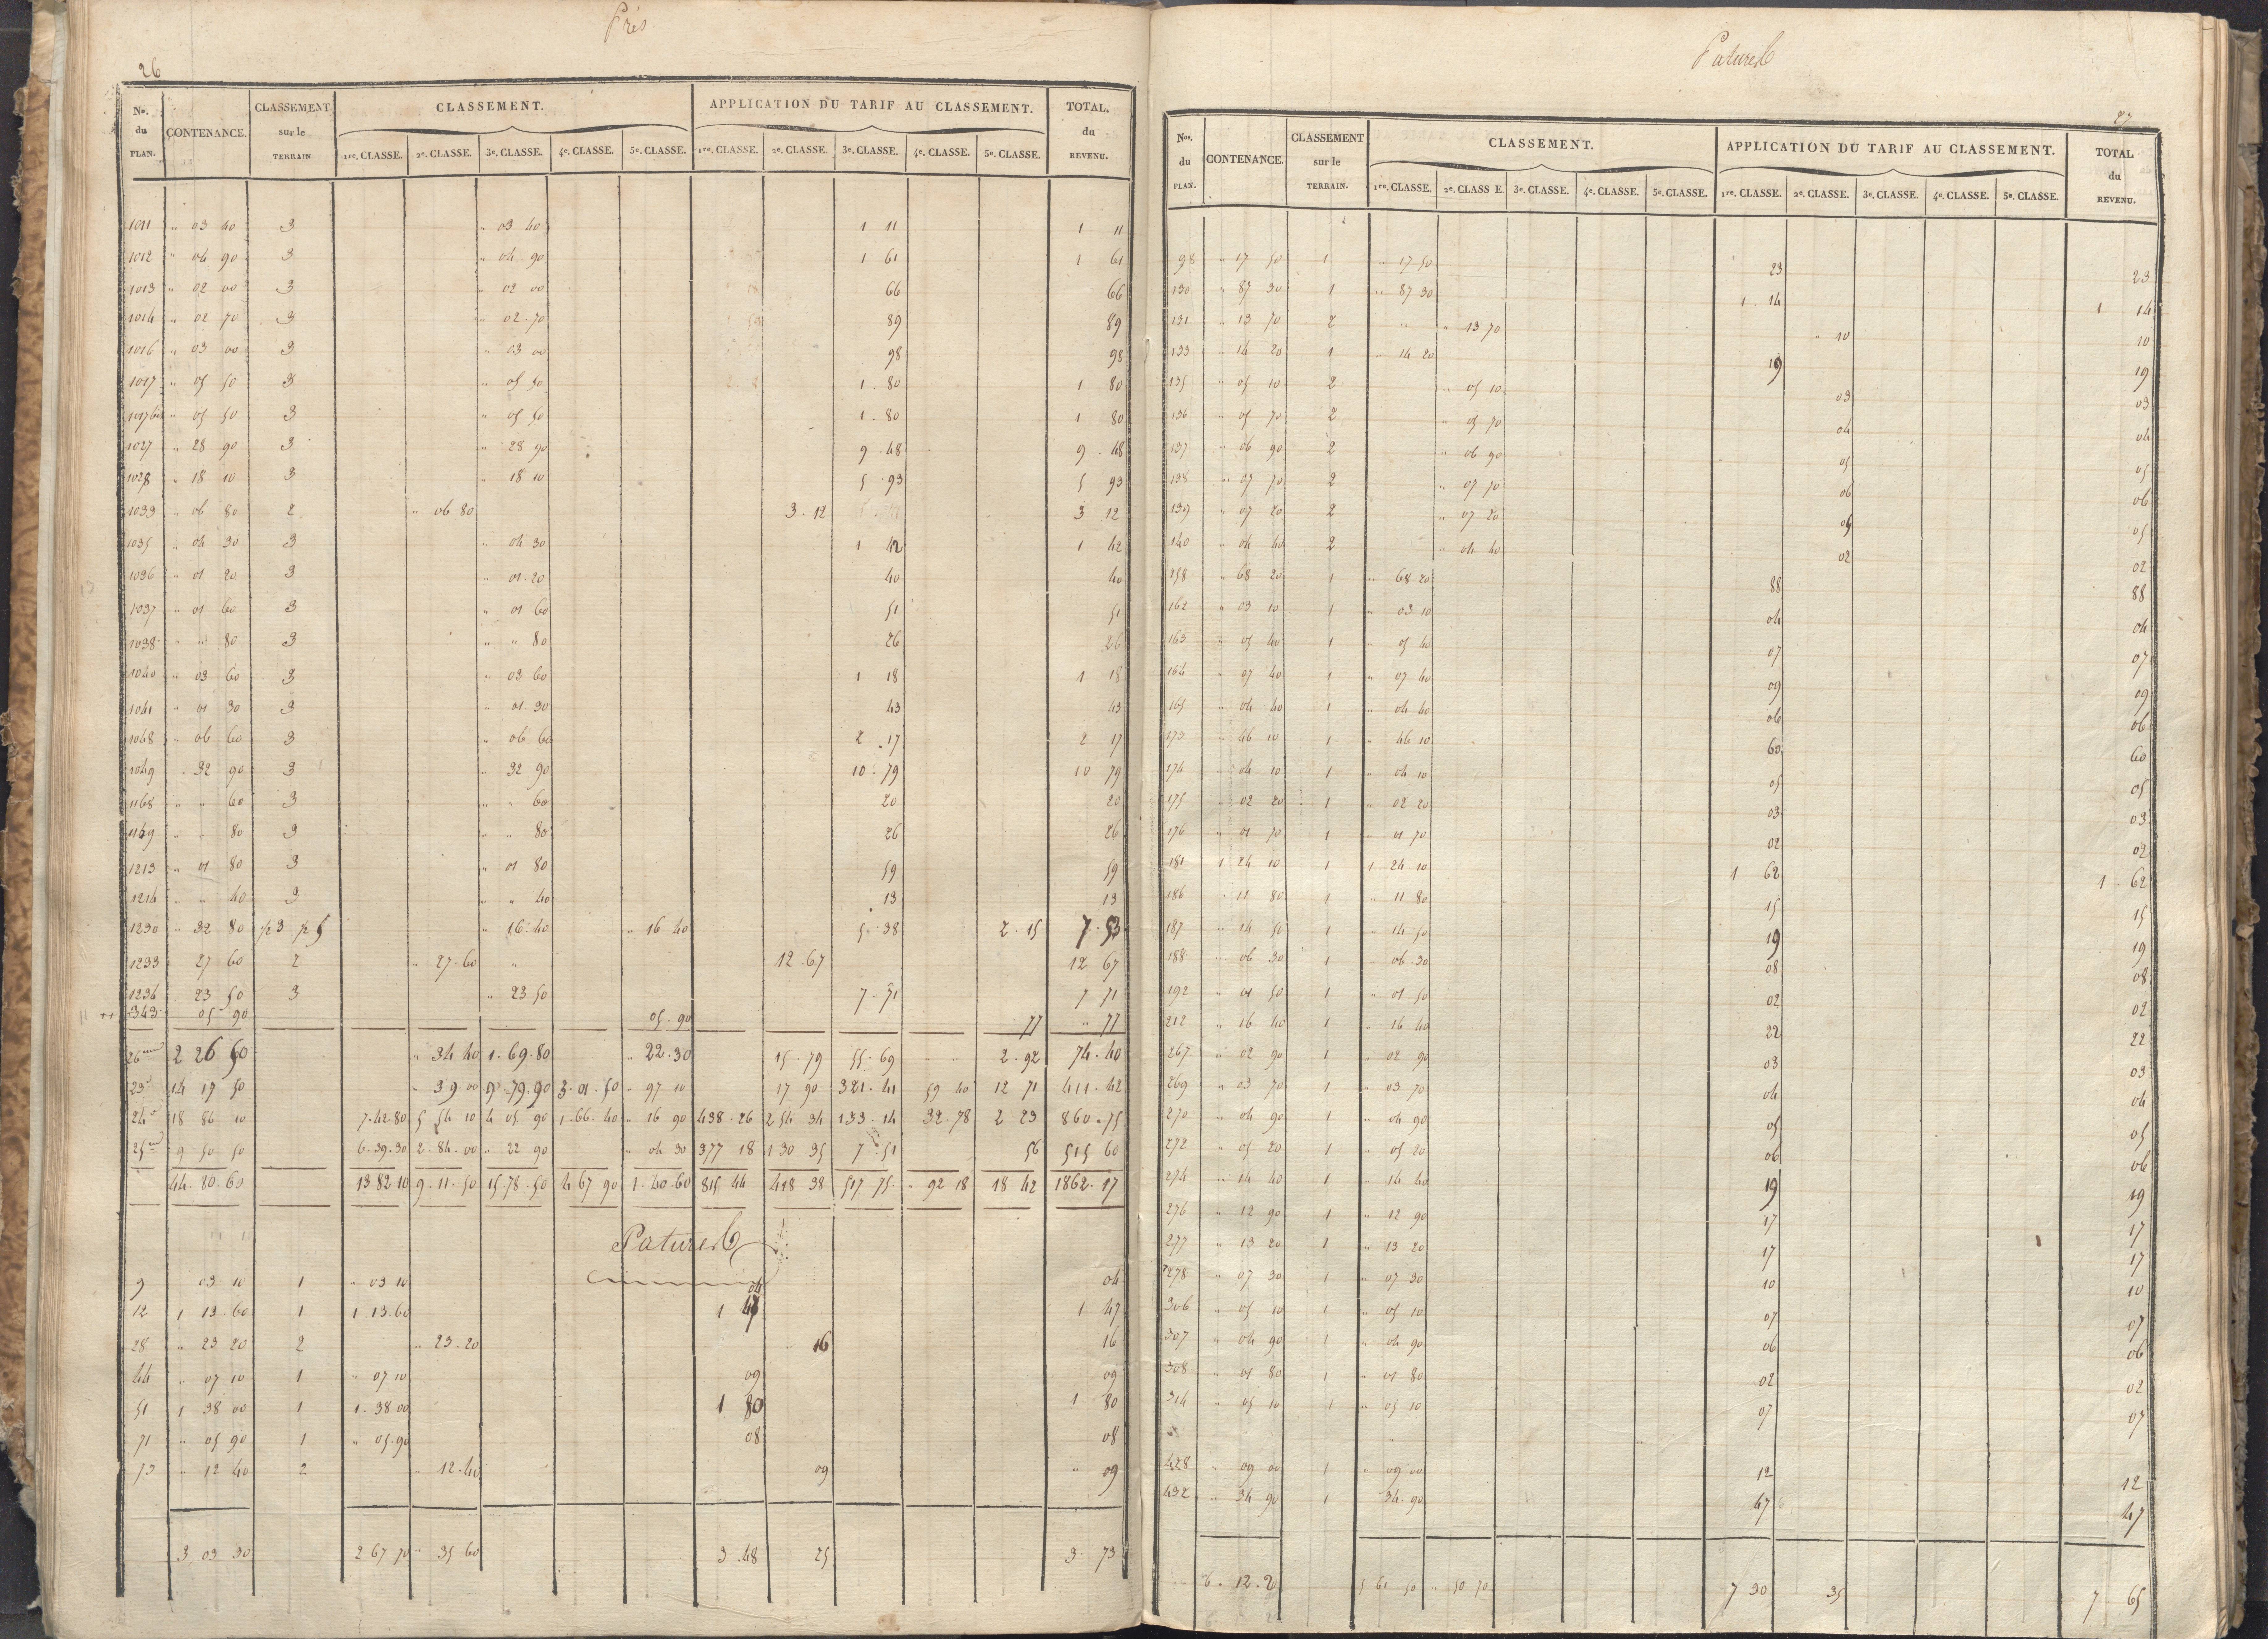 Prés
26
No. du PLAN. CONTENANCE. CLASSEMENT sur le TERRAIN CLASSEMENT. APPLICATION DU TARIF AU CLASSEMENT. TOTAL. du REVENU.
1re. CLASSE. 2e. CLASSE. 3e. CLASSE. 4e. CLASSE. 5e. CLASSE. 1re. CLASSE. 2e. CLASSE. 3e. CLASSE. 4e. CLASSE. 5e. CLASSE.
1011 " 03 40 3 " 03 40 1 11 1 11
1012 " 04 90 3 " 04 90 1 61 1 61
1013 " 02 00 3 " 02 00 66 66
1014 " 02 70 3 " 02 70 89 89
1016 " 03 00 3 " 03 00 98 98
1017 " 05 50 3 " 05 50 1 80 1 80
1017 bis " 05 50 3 " 05 50 1 80 1 80
1027 " 28 90 3 " 28 90 9 48 9 48
1028 " 18 10 3 " 18 10 5 93 5 93
1033 " 06 80 2 " 06 80 3 12 3 12
1035 " 04 30 3 " 04 30 1 42 1 42
1036 " 01 20 3 " 01 20 40 40
1037 " 01 60 3 " 01 60 51 51
1038 " " 80 3 " " 80 26 26
1040 " 03 60 3 " 03 60 1 18 1 18
1041 " 01 30 3 " 01 30 43 43
1048 " 06 60 3 " 06 60 2 17 2 17
1049 " 32 90 3 " 32 90 10 79 10 79
1168 " " 60 3 " " 60 20 20
1169 " " 80 3 " " 80 26 26
1213 " 01 80 3 " 01 80 59 59
1214 " " 40 3 " " 40 13 13
1230 " 32 80 1/2 3 1/2 5 " 16 40 " 16 40 5 38 2 15 7 53
1233 " 27 60 2 " 27 60 " 12 67 12 67
1236 23 50 3 " 23 50 7 71 7 71
343 05 90 05 90 77 " 77
26 2 26 50 " 34 40 1 69 80 " 22 30 15 79 55 69 2 92 74 40
23 14 17 50 " 39 00 9 79 90 3 01 50 " 97 10 17 90 321 41 59 40 12 71 411 42
24 18 86 10 7 42 80 5 54 10 4 05 90 1 66 40 " 16 90 438 26 254 34 133 14 32 78 2 23 860 75
25 9 50 50 6 39 30 2 84 00 " 22 90 " 04 30 377 18 130 35 7 51 56 515 60
44 80 60 13 82 10 9 11 50 15 78 50 4 67 90 1 40 60 815 44 418 38 517 75 " 92 18 18 42 1862 17
Patures
9 03 10 1 " 03 10 04 04
12 1 13 60 1 1 13 60 1 47 1 47
28 " 23 20 2 " 23 20 " 16 16
44 " 07 10 1 " 07 10 09 09
51 1 38 00 1 1 38 00 1 80 1 80
71 " 05 90 1 " 05 90 08 08
73 " 12 40 2 " 12 40 09 " 09
3 03 30 2 67 70 " 35 60 3 48 25 3 73
Patures
27
Nos. du PLAN. CONTENANCE. CLASSEMENT sur le TERRAIN. CLASSEMENT. APPLICATION DU TARIF AU CLASSEMENT. TOTAL du REVENU.
1re. CLASSE. 2e. CLASS E. 3e. CLASSE. 4e. CLASSE. 5e. CLASSE. 1re. CLASSE. 2e. CLASSE. 3e. CLASSE. 4e. CLASSE. 5e. CLASSE.
98 " 17 50 1 " 17 50 23 23
130 " 87 30 1 " 87 30 1 14 1 14
131 " 13 70 2 " " 13 70 " 10 10
133 " 14 20 1 " 14 20 19 19
135 " 05 10 2 " 05 10 03 03
136 " 05 70 2 " 05 70 04 04
137 " 06 90 2 " 06 90 05 05
138 " 07 70 2 " 07 70 06 06
139 " 07 20 2 " 07 20 05 05
140 " 04 40 2 " 04 40 02 02
158 " 68 20 1 " 68 20 88 88
162 " 03 10 1 " 03 10 04 04
163 " 05 40 1 " 05 40 07 07
164 " 07 40 1 " 07 40 09 09
165 " 04 40 1 " 04 40 06 06
173 " 46 10 1 " 46 10 60 60
174 " 04 10 1 " 04 10 05 05
175 " 02 20 1 " 02 20 03 03
176 " 01 70 1 " 01 70 02 02
181 1 24 10 1 1 24 10 1 62 1 62
186 " 11 80 1 " 11 80 15 15
187 " 14 50 1 " 14 50 19 19
188 " 06 30 1 " 06 30 08 08
192 " 01 50 1 " 01 50 02 02
212 " 16 40 1 " 16 40 22 22
267 " 02 90 1 " 02 90 03 03
269 " 03 70 1 " 03 70 04 04
270 " 04 90 1 " 04 90 05 05
272 " 05 20 1 " 05 20 06 06
274 " 14 40 1 " 14 40 19 19
276 " 12 90 1 " 12 90 17 17
277 " 13 20 1 " 13 20 17 17
278 " 07 30 1 " 07 30 10 10
306 " 05 10 1 " 05 10 07 07
307 " 04 90 1 " 04 90 06 06
308 " 01 80 1 " 01 80 02 02
314 " 05 10 1 " 05 10 07 07
428 " 09 00 1 " 09 00 12 12
432 " 34 90 1 34 90 47 47
6 12 20 5 61 50 " 50 70 7 30 35 7 65